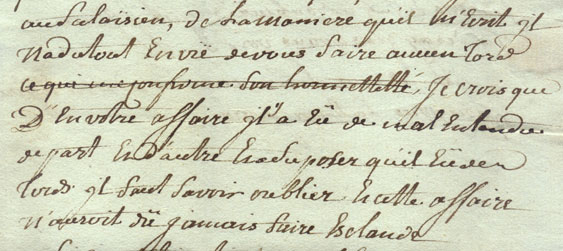 au Salaisien, de la maniere qu'il m'Ecrit jl
Na du tout Envië de vous faire aucun Tord
ce qui me confirme son honnetteté, Je crois que
D'En votre affaire jl y a Eü de mal Entendu
de part En d'autre En suposer qu'il Eü des
Tords jl faut Savoir oublier En cette affaire
N'auroit dü jamais faire Esclandre